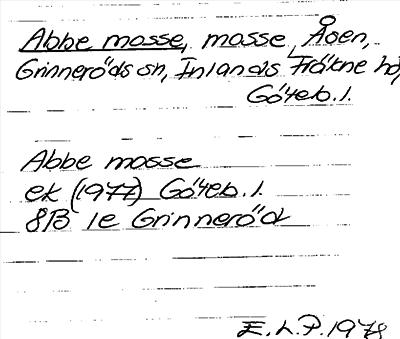 Abbe mosse, mosse, Åöen,
Grinneröds sn, Inlands Fräkne hd,
Göteb. l.
Abbe mosse
ek (1977) Göteb. l.
8B 1e Grinneröd
E.L.P. 1978